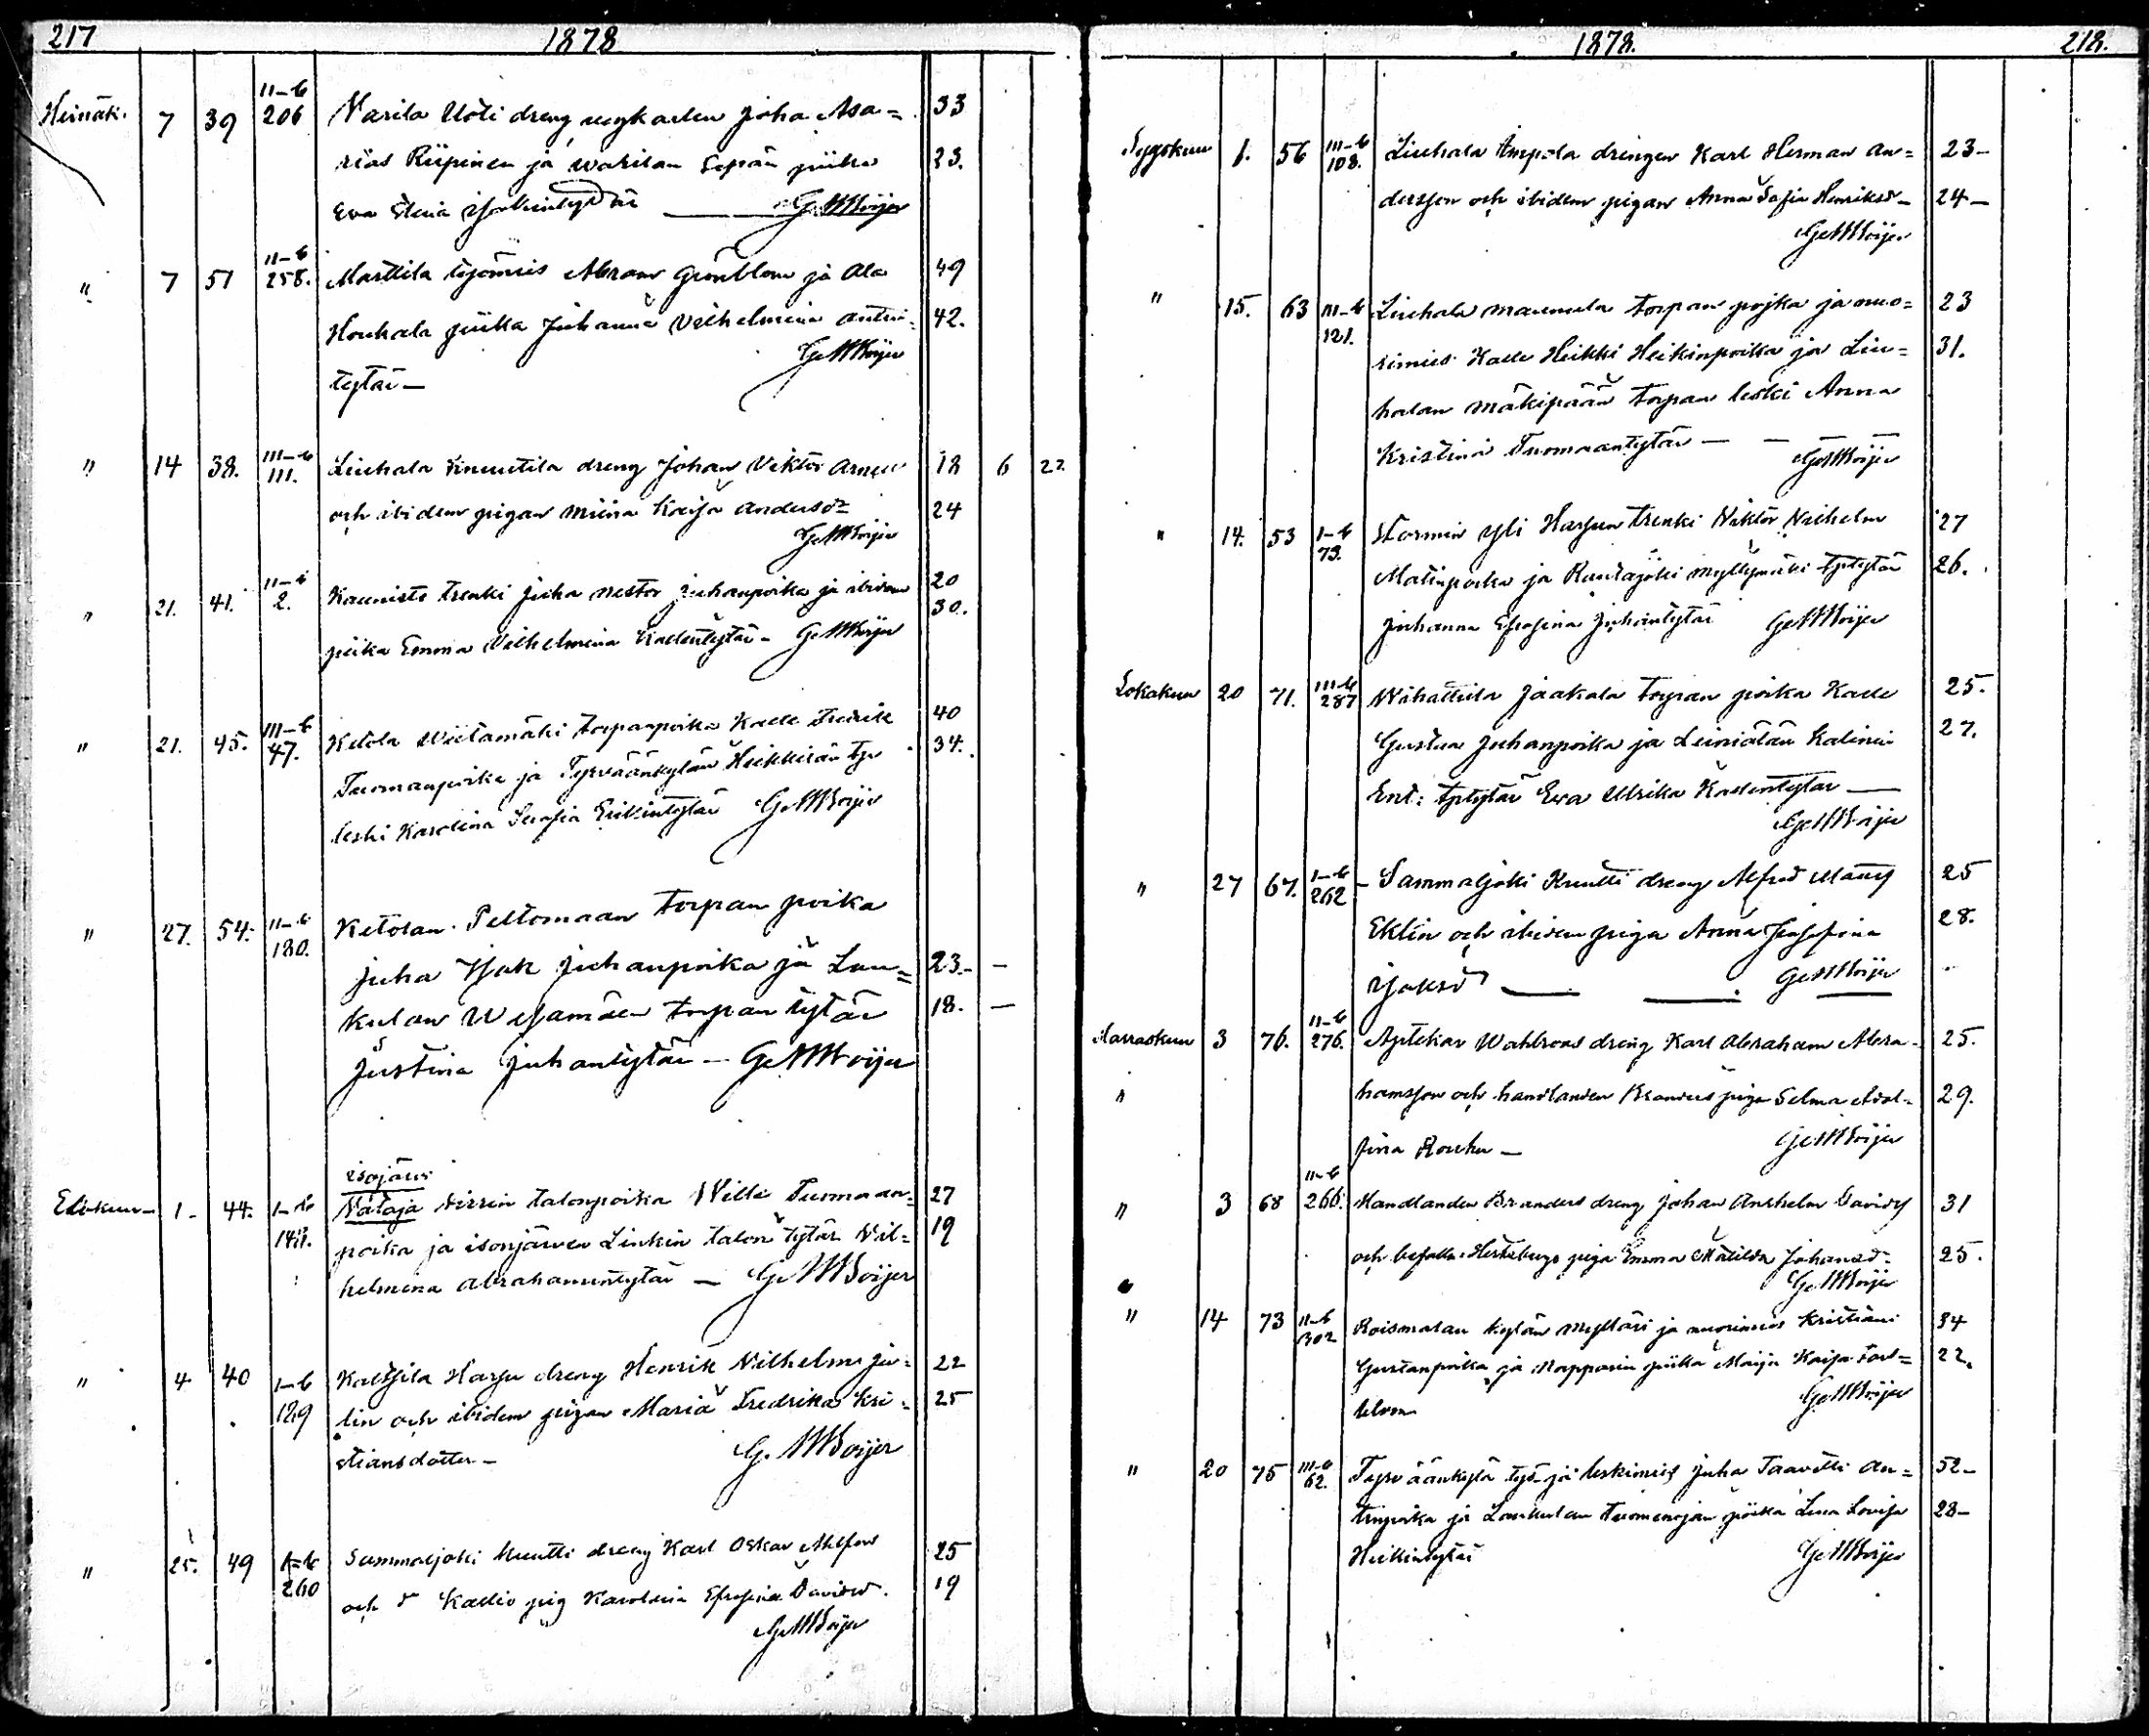 217 1878
Heinäk. 7 39 II-b 206 Varila Uoti dreng ungkarlen Joha Asa= 33
rias Riipinen ja warilan Sepän piika 23.
Eva Stina G. A. W. Boijer
" 7 51 II-b 258. Marttila työmies Abram Grönblom ja Ala 49
Houhala piika Juhanna Vilhelmina Antin= 42.
tytär — G. A. W. Boijer
" 14 38. III-b 111. Liuhala Knuutila dreng Johan Viktor 18 6 22
och ibidem pigan Miina Kaisa Andersd= 24
G. A. W. Boijer
" 21. 41. II-b 2. Kaunisto trenki Juha Nestor Juhanpoika ja ibidem 20
piika Emma Vilhelmina Kallentytär — G. A. W. Boijer 30.
" 21. 45. III-b 47. Ketola Wiitamäki torpanpoika Kalle Fredrik 40
Tuomanpoika ja Tyrväänkylän Heikkilän 34.
leski Karolina Serafia Erikintytär G. A. W. Boijer
" 27. 54. II-b 180. Ketolan Peltomaan torpan poika
Juha Isak Juhanpoika ja Lou= 23. —
kulan Wesamäen torpan tytär 18. —
Justina Juhantytär — G. A. W. Boijer
Isojärvi
Elokuun 1. 44. I-b 148. Nätäjä talonpoika Ville Tuomaan= 27
poika ja isonjärven Linkin talon tytär Vil= 19
helmina Abrahamintytär — G. A. W. Boijer
" 4 40 I-b 129 Kaltsila Harju dreng Henrik Vilhelm Ju= 22
lin och ibidem pigan Maria Fredrika Kri= 25
stiansdotter — G. A. W. Boijer
" 25. 49 I-b 260 Sammaljoki Knutti dreng Karl Oskar 25
och d Kallio pig Karolina Efrosina Davidsd. 19
G. A. W. Boijer
1878. 218.
Syyskuun 1. 56 III-b 108. Liuhala Impola drengen Karl Herman An= 23—
dersson och ibidem pigan Anna Sofia Henriksd— 24—
G. A. W. Boijer
" 15. 63 III-b 121. Liuhala Maunula torpan pojka ja nuo= 23
rimies Kalle Heikki Heikinpoika ja Liu= 31.
halan mäkipään torpan leski Anna
Kristina Tuomaantytär — — G. A. W. Boijer
" 14. 53 I-b 73. Stormin Yli Harjun trenki Viktor Vilhelm 27
Matinpoika ja Rautajoki Myllymäki tptytär 26.
Juhanna Efrosina Juhantytär G. A. W. Boijer
Lokakuun 20 71. III-b 287 Wihattula Jaakala torpan poika Kalle 25.
Gustaa Juhanpoika ja Leiniälän Kalinin 27.
Ent: tptytär Eva Ulrika Kallentytär —
G. A. W. Boijer
" 27 67. I-b 262 - Sammaljoki Knutti dreng Alfred Matts 25
Eklin och ibidem piga Anna Josefina 28.
Isaksd — — G. A. W. Boijer
Marraskuun 3 76. II-b 276. Aptekar Wahlroos dreng Karl Abraham Abra- 25.
" hamsson och handlanden Branders piga Selma Adol= 29.
fina Rouhu — G. A. W. Boijer
" 3 68 II-b 266. Handlanden Branders dreng Johan Anshelm Davidss 31
och befalln. Hertzbergs piga Emma Matilda Johansd= 25.
G. A. W. Boijer
" 14 73 II-b 302 Roismalan kylän mylläri ja nuorimies Kristiani 34
Gustanpoika ja Napparin piika Maija Kaisa 22.
blom G. A. W. Boijer
" 20 75 III-b 62. Tyrväänkylä työ- ja leskimies Juha Taavetti An= 52—
tinpoika ja Loukulan Tuomenojan piika Lisa Lovisa 28—
Heikintytär G. A. W. Boijer